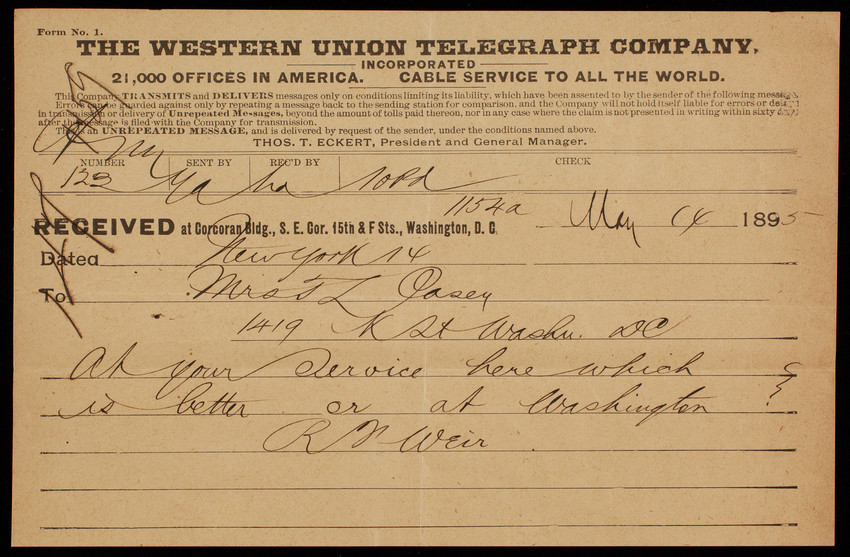 Form No. 1.
THE WESTERN UNION TELEGRAPH COMPANY,
INCORPORATED
21,000 OFFICES IN AMERICA. CABLE SERVICE TO ALL THE WORLD.
This Company TRANSMITS and DELIVERS messages only on conditions limiting its liability, which have been assented to by the sender of the following message.
Errors can be guarded against only by repeating a message back to the sending station for comparison, and the Company will not hold itself liable for errors or delays
in transmission or delivery of Unrepeated Messages, beyond the amount of tolls paid thereon, nor in any case where the claim is not presented in writing within sixty days
after the message is filed with the Company for transmission.
This is an UNREPEATED MESSAGE, and is delivered by request of the sender, under the conditions named above.
THOS. T. ECKERT, President and General Manager.
NUMBER SENT BY REC'D BY CHECK
123 Ya
1154a
RECEIVED at Corcoran Bldg., S. E. Cor. 15th & F Sts., Washington, D. C. May 14 1895
Dated New York 14
To Mrs T L Casey
1419 K St Washn. DC
At your service here which
is better or at Washington ?
R F Weir